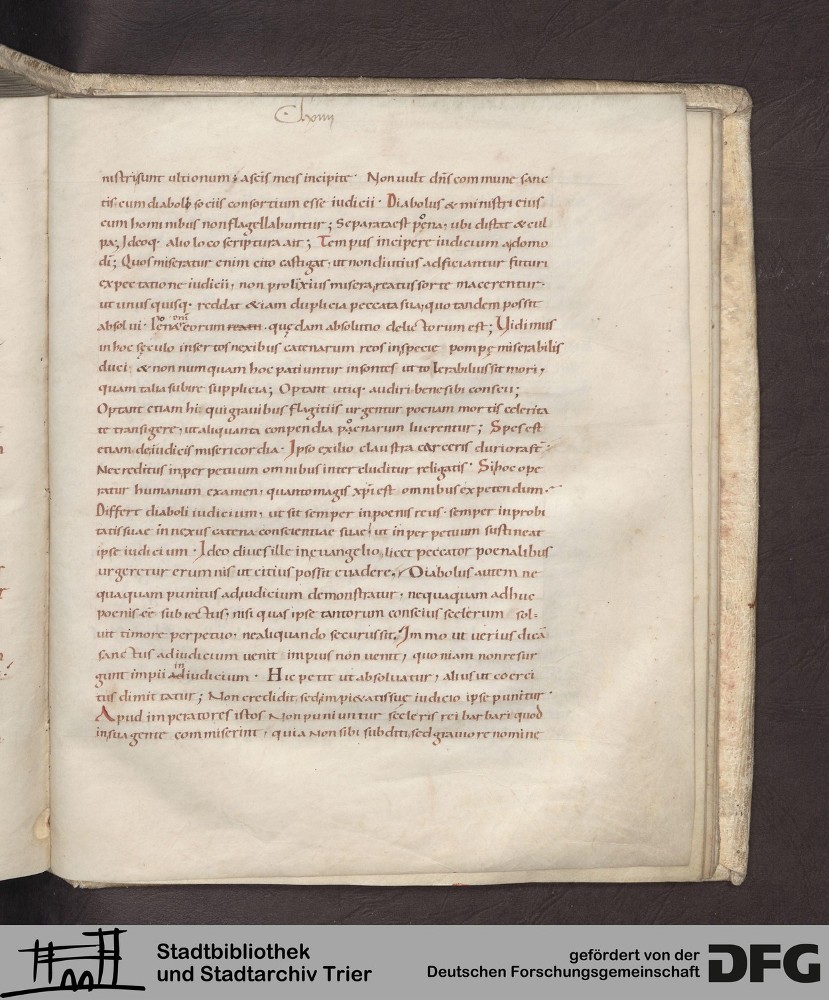 Clxiiij
nistri sunt ultionum; a scis meis incipite· Non uult dns commune sanc
tis cum diaboli sociis consortium esse iudicii · Diabolus & ministri eius
cum hominibus non flagellabuntur; Separata est pęna, ubi distat & cul
pa; Ideoq· alio loco scriptura ait; Tempus incipere iudicium a domo
di; Quos miseratur enim cito castigat, ut non diutius adficiantur futuri
expectatione iudicii, non prolixius misera, rtatus sorte macerentur·
ut unus quisq· reddat & iam duplicia peccata sua, quo tandem possit
absolui · eorum quędam absolutio delictorum est; Uidimus
in hoc sęculo insertos nexibus catenarum reos in specie pompę miserabilis
duci · & non numquam hoc pati untur insontes ut tolerabilius sit mori,
quam talia subire supplicia; Optant utiq· audiri bene sibi conscii;
Optant etiam hi qui grauibus flagitiis urgentur poenam mortis celerita
te transigere, ut aliquanta conpendia pęnarum lucrentur; Spes est
etiam de iudicis misericordia · Ipso exilio claustra carceris durior ast
Nec reditus in perpetuum omnibus intercluditur religatis · Si hoc ope
ratur humanum examen, quanto magis xpi est omnibus expetendum·
Differt diaboli iudicium, ut sit semper in poenis reus · semper inprobi
tatis suae in nexus catena conscientiae suae ut in perpetuum sustineat
ipse iudicium · Ideo diues ille in euangelio, licet peccator poenalibus
urgeretur erumnis ut citius possit euadere, Diabolus autem ne
quaquam punitus ad iudicium demonstratur, nequaquam adhuc
poenis ee subiectus, nisi quas ipse tantorum conscius scelerum sol-
uit timore perpetuo, ne aliquando securus sit, Immo ut uerius dicā
sanctus ad iudicium uenit impius non uenit, quoniam non resur
gunt impii in iudicium · Hic petit ut absoluatur, alius ut coerci
tus dimittatur; Non credidit, sed impietatis suę iudicio ipse punitur·
Apud imperatores istos Non puniuntur sceleris rei barbari quod
in sua gente commiserint, quia Non sibi subditi, sed grauiore nomine
Stadtbibliothek
und Stadtarchiv Trier
gefördert von der
Deutschen Forschungsgemeinschaft
DFG